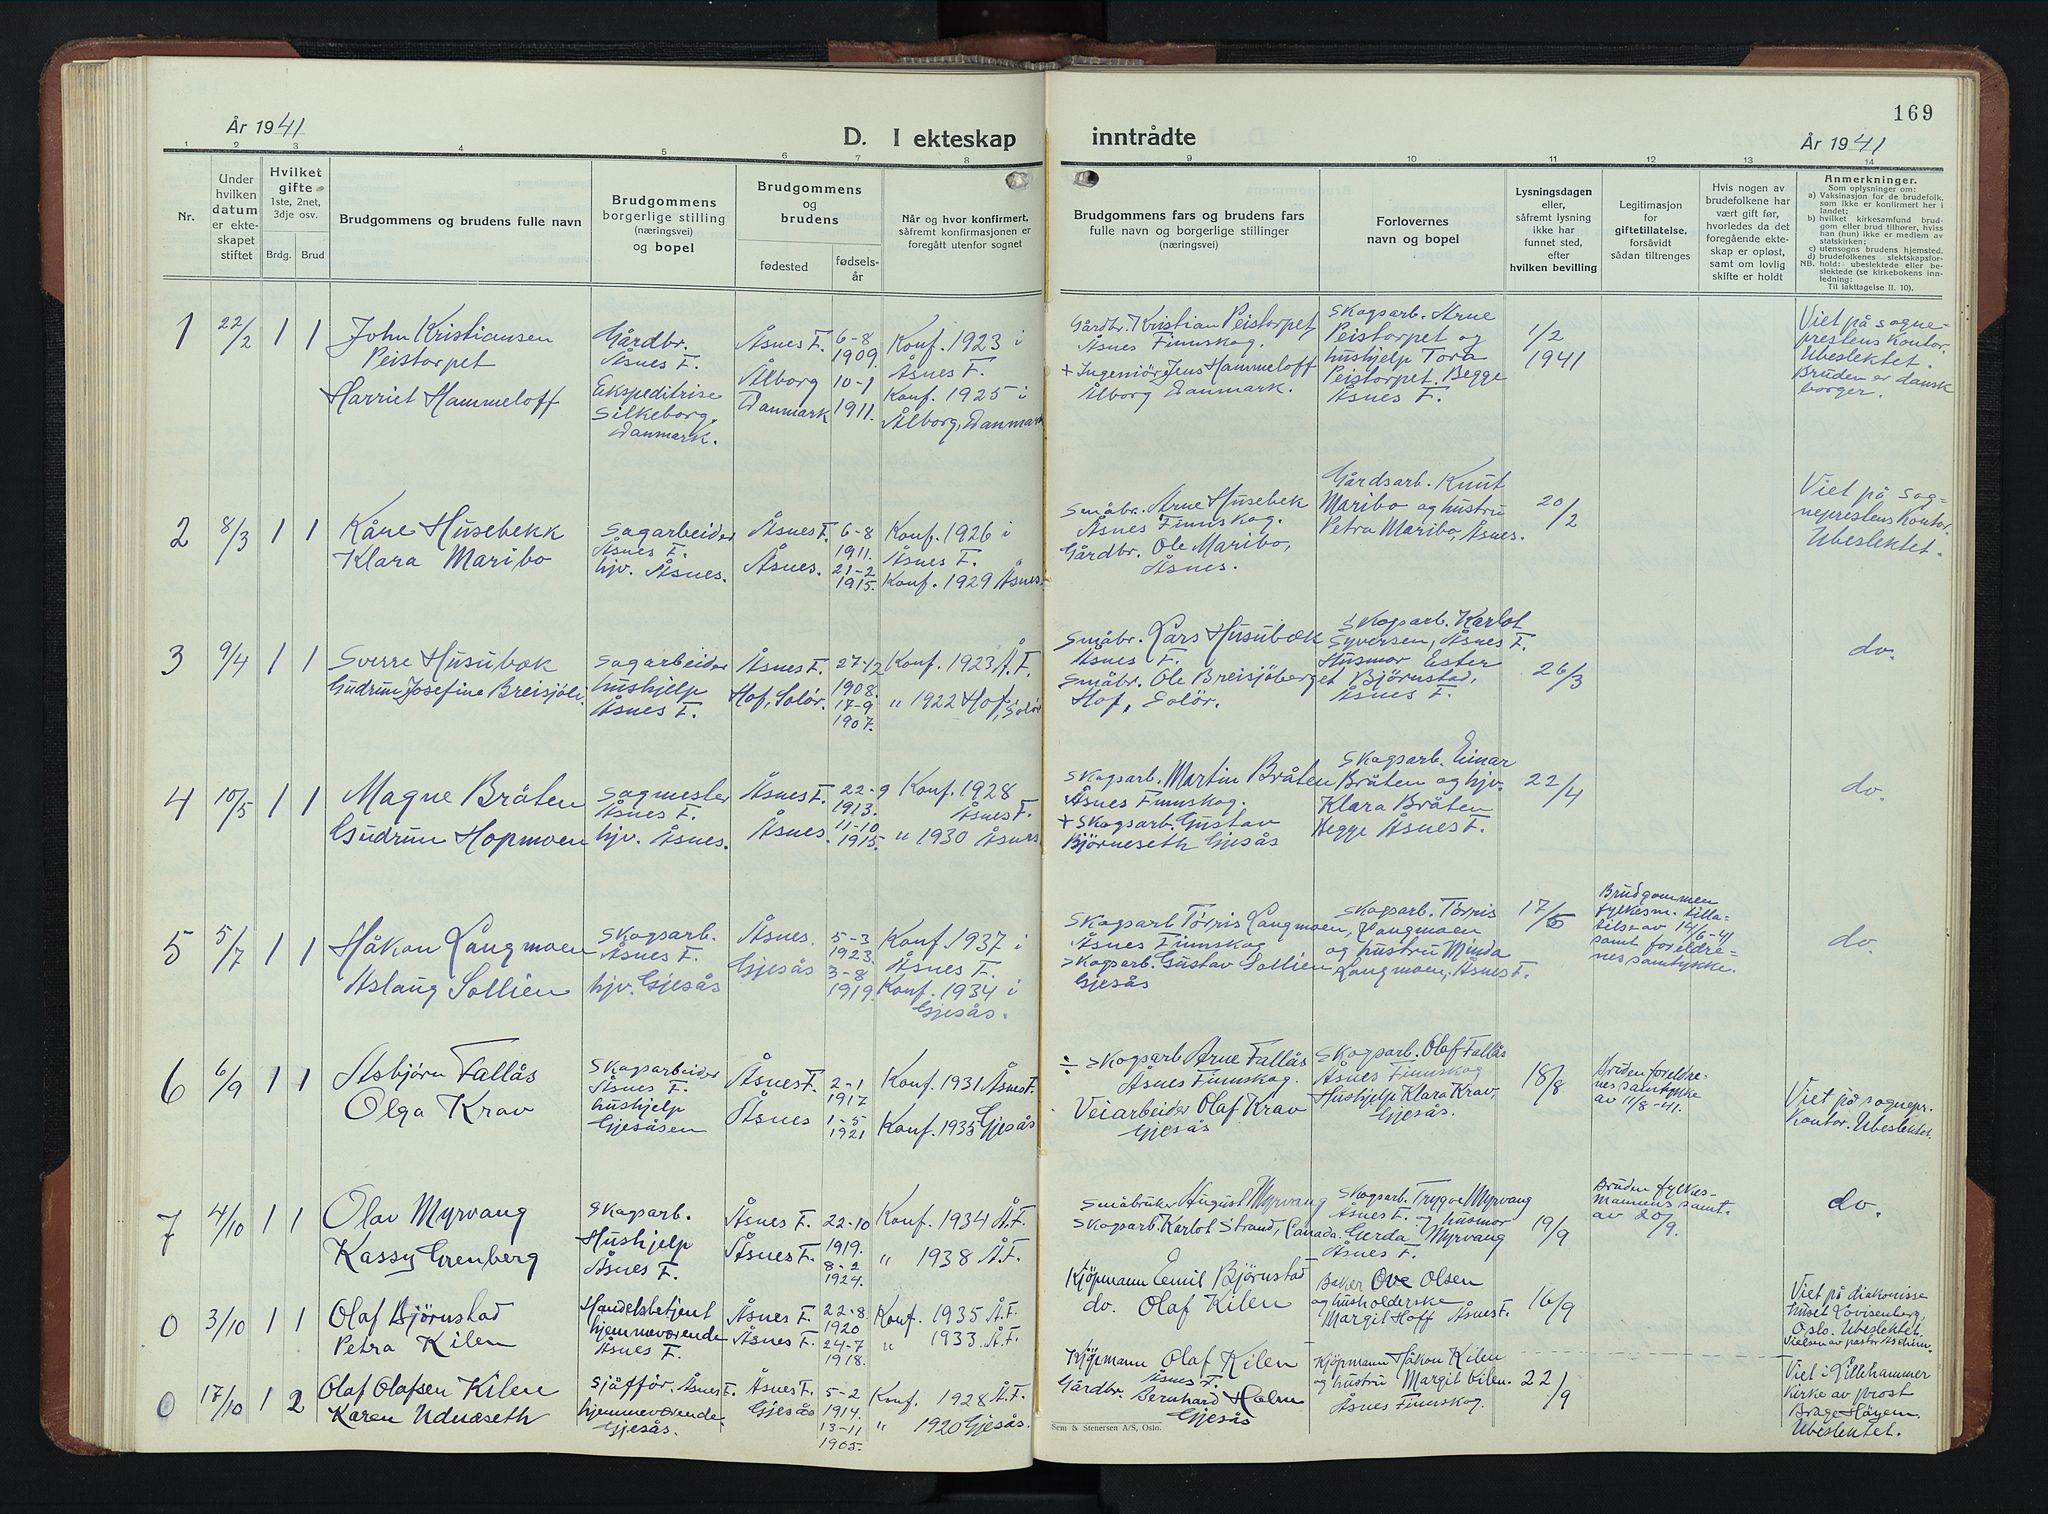 169
År 1941
D. I ekteskap
inntrådte
År 1941
1 2 3 4 5 6 7 8 9 10 11 12 13 14
Nr.
Under
hvilken
datum
er ekte-
skapet
stiftet
Hvilket
gifte
1ste, 2net,
3dje osv.
Brdg. Brud
Brudgommens og brudens fulle navn
Brudgommens
borgerlige stilling
(næringsvei)
og bopel
Brudgommens
og
brudens
fødested
fødsels-
år
Når og hvor konfirmert,
såfremt konfirmasjonen er
foregått utenfor sognet
Brudgommens fars og brudens fars
fulle navn og borgerlige stillinger
(næringsvei)
Forlovernes
navn og bopel
Lysningsdagen
eller,
såfremt lysning
ikke har
funnet sted,
efter
hvilken bevilling
Legitimasjon
for
giftetillatelse,
forsåvidt
sådan tiltrenges
Hvis nogen av
brudefolkene har
vært gift før,
hvorledes da det
foregående ekte-
skap er opløst,
samt om lovlig
skifte er holdt
Anmerkninger.
Som oplysninger om:
a) Vaksinasjon for de brudefolk,
som ikke er konfirmert her i
landet;
b) hvilket kirkesamfund brud-
gom eller brud tilhører, hviss
han (hun) ikke er medlem av
statskirken;
c) utensogns brudens hjemsted.
d) brudefolkenes slektskapsfor-
NB. hold: ubeslektede eller be-
slektede (se kirkebokens inn-
ledning:
Til iakttagelse II. 10).
1
22/2
1 1
John Kristiansen
Peistorpet
Harriet Hammeloff
Gårdbr.
Åsnes F.
Ekspeditrise
Silkeborg,
Danmark.
Åsnes F.
Ålborg
Danmark
6-8
1909.
10-1
1911.
Konf. 1923 i
Åsnes F.
Konf. 1925 i
Ålborg, Danmark
Gårdbr. Kristian Peistorpet,
Åsnes Finnskog.
+ Ingeniör Jens Hammeloff
Ålborg Danmark.
Skogsarb. Arne
Peistorpet og
hushjelp Tora
Peistorpet. Begge
Åsnes F.
1/2
1941
Viet på sogne-
prestens kontor.
Ubeslektet.
Bruden er dansk
borger.
2
8/3
1 1
Kåre Husebekk
Klara Maribo
Sagarbeider
Åsnes F.
hjv. Åsnes.
Åsnes F.
Åsnes.
6-8
1911.
21-2
1915.
Konf. 1926 i
Åsnes F.
Konf. 1929 Åsnes.
Småbr. Arne Husebek
Åsnes Finnskog.
Gårdbr. Ole Maribo,
Åsnes.
Gårdsarb. Knut
Maribo og hustru
Petra Maribo, Åsnes.
20/2
Viet på sog-
neprestens kontor.
Ubeslektet.
3
9/4
1 1
Sverre Husubæk
Gudrun Josefine Breisjöb.
Sagarbeider
hushjelp
Åsnes F.
Åsnes F.
Hof, Solör.
27-12
1908.
17-9
1907.
Konf. 1923 Å.F.
" 1922 Hof, Solör
Småbr. Lars Husubæk
Åsnes F.
Småbr. Ole Breisjöberget
Hof, Solör.
Skogsarb. Karlot
Syversen, Åsnes F.
Husmor Ester
Björnstad,
Åsnes F.
26/3
do.
4
10/5
1 1
Magne Bråten
Gudrun Hopmoen
Sagmester
Åsnes F.
hjv. Åsnes.
Åsnes F.
Åsnes.
22-9
1913.
11-10
1915.
Konf. 1928
Åsnes F.
" 1930 Åsnes
Skogsarb. Martin Bråten
Åsnes Finnskog.
+ Skogsarb. Gustav
Björneseth Gjesås
Skogsarb. Einar
Bråten og hjv.
Klara Bråten
Begge Åsnes F.
22/4
do.
5
5/7
1 1
Håkon Langmoen
Aslaug Sollien
Skogsarb.
Åsnes F.
hjv. Gjesås
Åsnes.
Gjesås
5-3
1923.
3-8
1919.
Konf. 1937 i
Åsnes F.
Konf. 1934 i
Gjesås.
Skogsarb. Törris Langmoen,
Åsnes Finnskog
Skogsarb. Gustav Sollien
Gjesås
Skogsarb. Törris
Langmoen
og hustru Minda
Langmoen, Åsnes F.
17/6
Brudgommen
fylkesm. tilla-
telse av 14/6-41
samt foreldre-
nes samtykke.
do.
6
6/9
1 1
Asbjörn Fallås
Olga Krav
Skogsarbeider
Åsnes F.
hushjelp
Gjesåsen
Åsnes F.
Åsnes
2-1
1917
1-5
1921
Konf. 1931 Åsnes F.
Konf. 1935 Gjesås
÷ Skogsarb. Arne Fallås
Åsnes Finnskog.
Veiarbeider Olaf Krav
Gjesås
Skogsarb. Olaf Fallås
Åsnes Finnskog
Hushjelp Klara Krav,
Gjesås.
18/8
Bruden foreldre-
nes samtykke
av 11/8-41.
Viet på sognepr.
kontor. Ubeslektet.
7
4/10
1 1
Olav Myrvang
Kassy Grenberg
Skogsarb.
Hushjelp
Åsnes F.
Åsnes F.
Åsnes F.
22-10
1919.
8-2
1924.
Konf. 1934 Å.F.
" 1938 Å.F.
Småbruker August Myrvang
Skogsarb. Karlot Strand, Canada.
Skogsarb. Trygve Myrvang
Åsnes F. og husmor
Gerda Myrvang
Åsnes F.
19/9
Bruden fylkes-
mannens samt.
av 20/9.
do.
0
3/10
1 1
Olaf Björnstad
Petra Kilen
Handelsbetjent
hjemmeværende
Åsnes F.
Åsnes F.
Åsnes F.
22-8
1920
24-7
1918.
Konf. 1935 Å.F.
" 1933 Å.F.
Kjöpmann Emil Björnstad
do. Olaf Kilen
Baker Ove Olsen
og husholderske
Margit Hoff Åsnes F.
16/9
Viet på diakonisse
huset Lovisenberg,
Oslo. Ubeslektet.
Vielsen av pastor Aschim.
0
17/10
1 2
Olaf Olafsen Kilen
Karen Udnæseth
Sjåfför, Åsnes F.
hjemmeværende
Gjesås.
Åsnes F.
Gjesås
5-2
1914.
13-11
1905.
Konf. 1928 Å.F.
" 1920 Gjesås.
Kjöpmann Olaf Kilen
Åsnes F.
Gårdbr. Bernhard Holm
Gjesås
Kjöpmann Håkon Kilen
og hustru Margit Kilen.
Åsnes Finnskog.
22/9
Viet i Lillehammer
Kirke av prost
Brage Höyem.
Ubeslektet.
Sem & Stenersen A/S, Oslo.